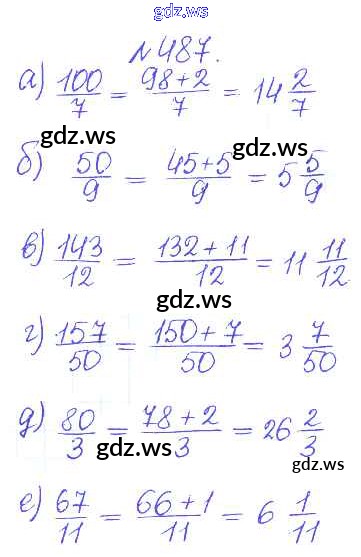 gdz.ws
№487.
а) 100/7 = 98+2/7 = 14 2/7
gdz.ws gdz.ws
б) 50/9 = 45+5/9 = 5 5/9
gdz.ws
в) 143/12 = 132+11/12 = 11 11/12
gdz.ws
г) 157/50 = 150+7/50 = 3 7/50
gdz.ws
д) 80/3 = 78+2/3 = 26 2/3
gdz.ws gdz.ws
е) 67/11 = 66+1/11 = 6 1/11
gdz.ws